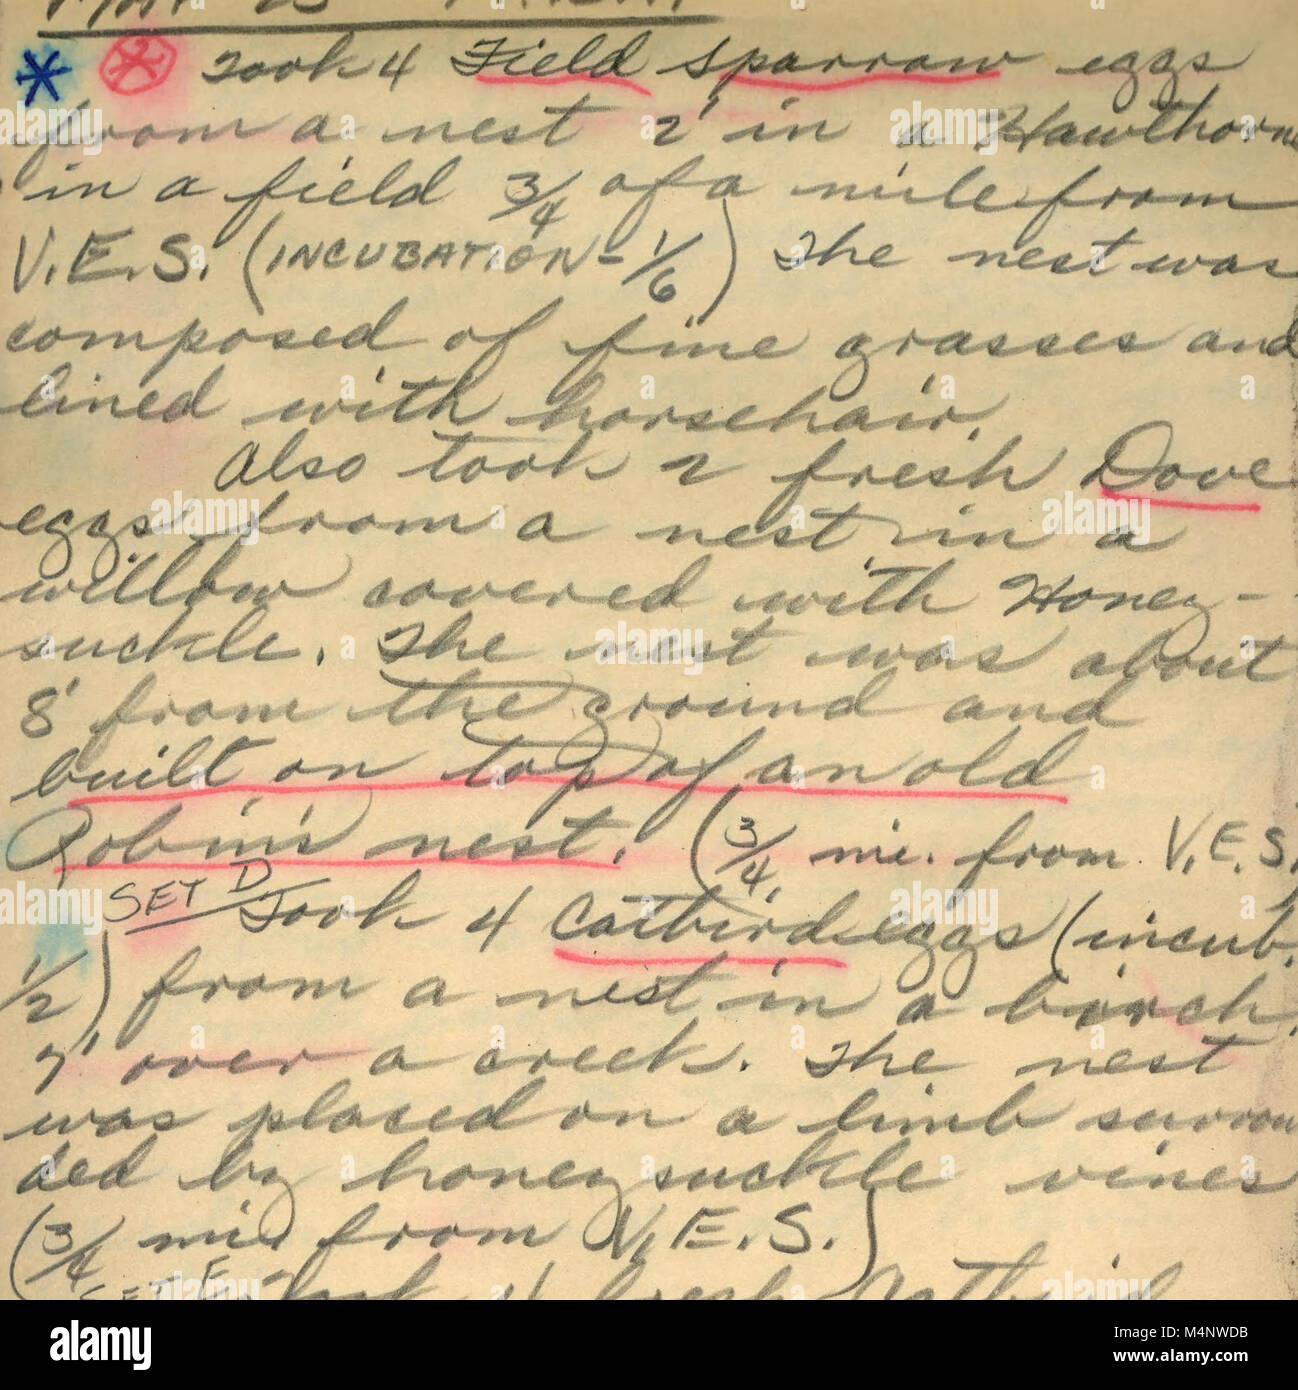 Took 4 Field Sparrow eggs
from a nest 2' in a Hawthorne
in a field 3/4 of a mile from
V.E.S. (INCUBATION - 1/6) The nest was
composed of fine grasses and
lined with horsehair.
Also took 2 fresh Dove
eggs from a nest in a
willow covered with Honey-
suckle. The nest was about
8' from the ground and
built on top of an old
Robin's nest. (3/4 mi. from V.E.S.)
SET D Took 4 Catbird eggs (incub.
1/2) from a nest in a birch
7' over a creek. The nest
was placed on a limb surroun
ded by honeysuckle vines
(3/4 mi. from V.E.S.)
SET E Took 4 fresh Catbird
alamy
a
alamy
www.alamy.com
Image ID: M4NWDB